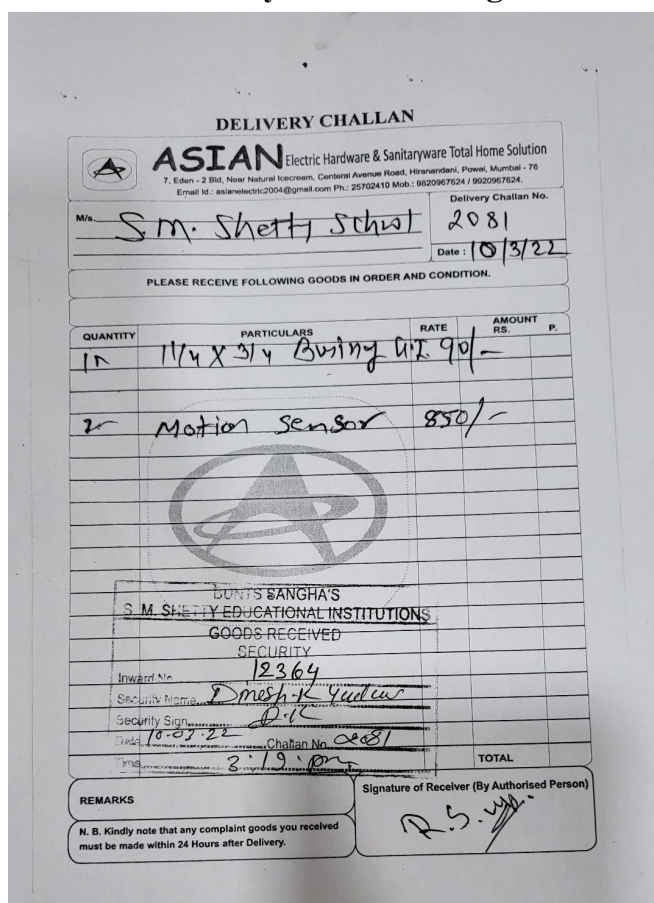 DELIVERY CHALLAN
ASIAN Electric Hardware & Sanitaryware Total Home Solution
7, Eden - 2 Bld, Near Natural Icecream, Centeral Avenue Road, Hiranandani, Powai, Mumbai - 76
Email Id.: asianelectric2004@gmail.com Ph.: 25702410 Mob.: 9820967624 / 9920967624.
M/s. S.M. Shetty School
Delivery Challan No.
2081
Date : 10/3/22
PLEASE RECEIVE FOLLOWING GOODS IN ORDER AND CONDITION.
QUANTITY PARTICULARS RATE AMOUNT RS. P.
1 1/4 X 3/4 G.I. 90/-
Motion Sensor 850/-
BUNTS SANGHA'S
S. M. SHETTY EDUCATIONAL INSTITUTIONS
GOODS RECEIVED
SECURITY
Inward No. 12364
Security Name Dinesh.K Yadav
Security Sign. D.K
Date 10-03-22 Challan No. 2081
Time 3:19:pm
TOTAL
REMARKS
Signature of Receiver (By Authorised Person)
N. B. Kindly note that any complaint goods you received
must be made within 24 Hours after Delivery.